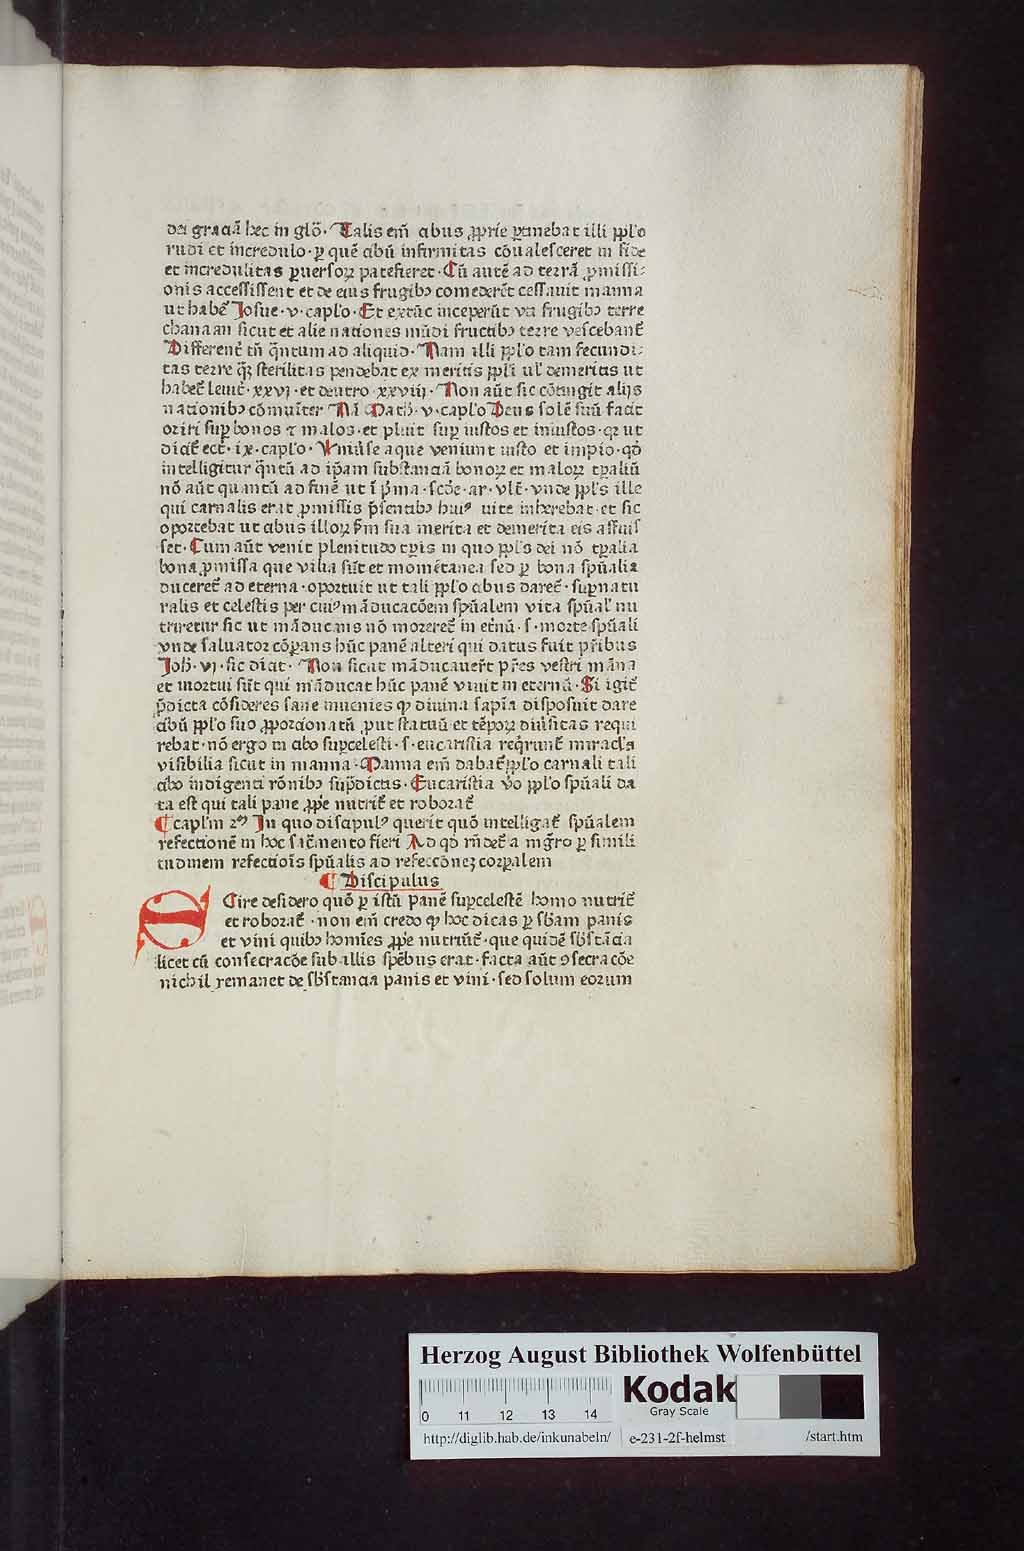 dei graciā hec in glō· Talis em̄ cibus ꝓprie ꝑtinebat illi pp̄lo
rudi et incredulo· ꝑ quē cibū infirmitas cōualesceret in fide
et incredulitas ꝑuersoꝝ patefieret· Cū autē ad terrā ꝓmissi⸗
onis accessissent et de eius frugibꝫ comederēt cessauit manna
ut habet̄ Josue·v·capl̄o· Et extūc inceperūt vti frugibꝫ terre
chanaan sicut et alie nationes mūdi fructibꝫ terre vescebant̄
Different̄ tn̄ q̄ntum ad aliquid· Nam illi pp̄lo tam fecundi⸗
tas terre qꝫ sterilitas pendebat ex meritis pp̄li ul̓ demeritis ut
habet̄ leuit̄·xxvj·et deutro·xxviij· Non aūt sic cōtingit alijs
nationibꝫ cōmuiter Nā Math·v·capl̄o Deus solē suū facit
oriri suꝑ bonos ⁊ malos·et pluit suꝑ iustos et iniustos·qꝛ ut
dicit̄ ecc̄·ix·capl̄o· Vniūse aque veniunt iusto et impio·qd̄
intelligitur q̄ntū ad ip̄am substanciā bonoꝝ et maloꝝ tꝑaliū
nō aūt quantū ad finē ut ī p̄ma·scd̄e·ar·vlt̄·vnde pp̄ls ille
qui carnalis erat ꝓmissis p̄sentibꝫ huiꝰ uite inherebat·et sic
oportebat ut cibus illoꝝ ẜm sua merita et demerita eis affuis
set· Cum aūt venit plenitudo tꝑis in quo pp̄ls dei nō tꝑalia
bona ꝓmissa que vilia sūt et momētanea sed ꝑ bona spūalia
duceret̄ ad eterna·oportuit ut tali pp̄lo cibus daret̄·suꝑnatu
ralis et celestis per cuiꝰ māducacōem spūalem vita spūal̓ nu
triretur sic ut māducans nō moreret̄ in et̄nū·s·morte spūali
vnde saluator cōꝑans hūc panē alteri qui datus fuit pr̄ibus
Joh·vj·sic dicit· Non sicut māducauer̄t pr̄es vestri māna
et mortui sūt qui māducat hūc panē viuit in eternū· Si igit̄
p̄dicta cōsideres sane inuenies ꝙ diuina sapīa disposuit dare
cibū pp̄lo suo ꝓporcionatū ꝓut statuū et tēpoꝝ diūsitas requi
rebat·nō ergo in cibo suꝑcelesti·s·eucaristia req̄runt̄ miracl̄a
visibilia sicut in manna· Manna em̄ dabat̄ pp̄lo carnali tali
cibo indigenti rōnibꝫ sup̄dictis· Eucaristia v̄o pp̄lo spūali da
ta est qui tali pane ꝓpͥe nutrit̄ et roborat̄
¶ capl̄m 2ᵐ In quo discipulꝰ querit quō intelligat̄ spūalem
refectionē in hoc sac̄mento fieri Ad qd̄ rn̄det̄ a mgr̄o ꝑ simili
tudinem refectiois spūalis ad refeccōneꝫ corꝑalem
¶ Discipulus
SCire desidero quō ꝑ istū panē suꝑcelestē homo nutrit̄
et roborat̄·non em̄ credo ꝙ hoc dicas ꝑ sb̄am panis
et vini quibꝫ homīes ꝓpͥe nutriūt̄·que quidē sb̄stācia
licet cū consecracōe sub illis spēbus erat·facta aūt ꝯsecracōe
nichil remanet de sb̄stancia panis et vini·sed solum eorum
Herzog August Bibliothek Wolfenbüttel
0 11 12 13 14
Kodak
Gray Scale
http://diglib.hab.de/inkunabeln/ e-231-2f-helmst /start.htm